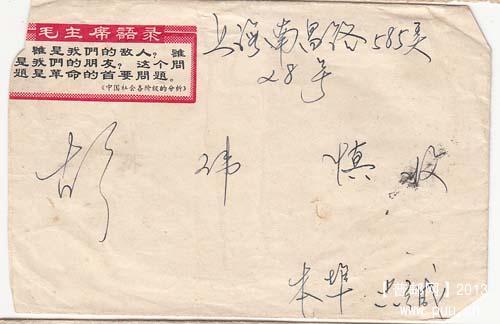 毛主席語录
誰是我們的敌人？誰
是我們的朋友？这个問
題是革命的首要問題。
《中国社会各阶级的分析》
上海南昌路585弄
28号
胡 慎 收
本埠 缄
2013
www.puu.cn